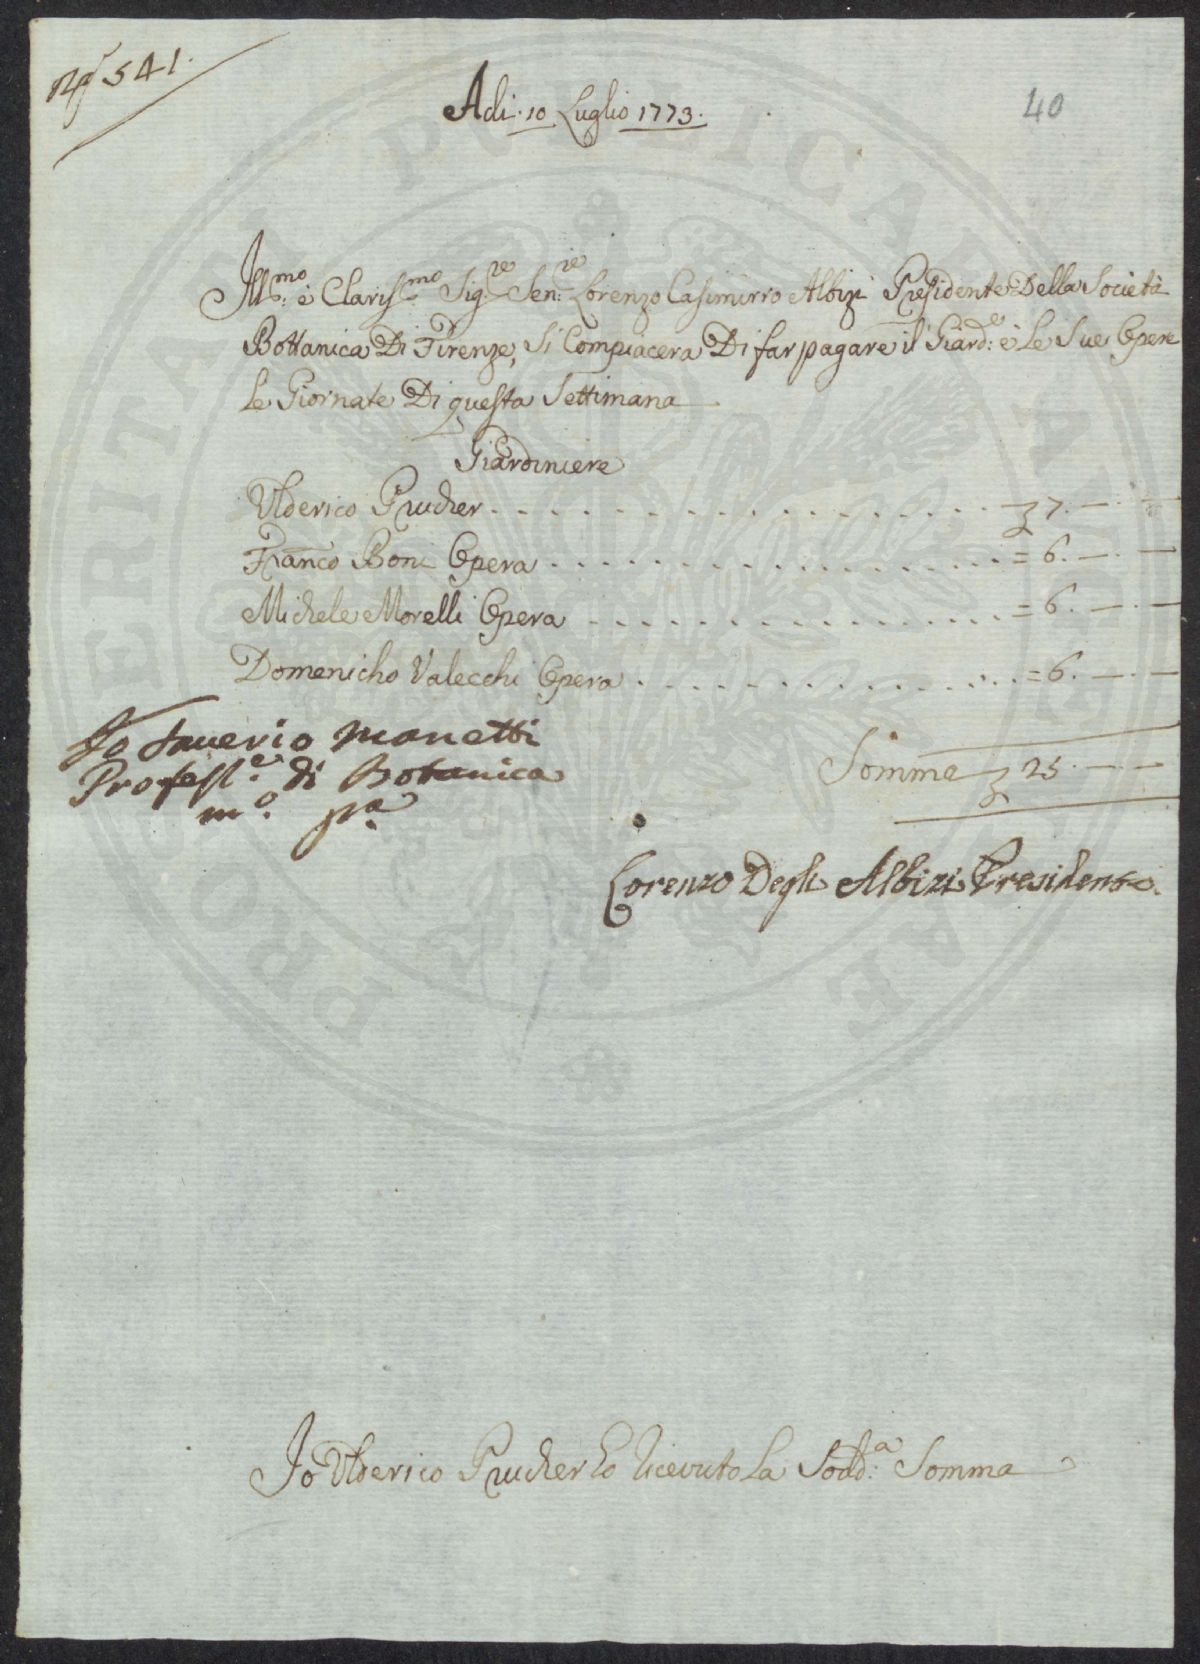 N.º 541.
40
Adi. 10 Luglio 1773.
Ill.mo è Clariss.mo Sig.re Sen.re Lorenzo Casimirro Albizi Presidente Della Società
Bottanica Di Firenze, Si Compiacera Di far pagare il Giard.e è Le Sue Opere
Le Giornate Di questa Settimana
Giardiniere
Ulderico Prucher - - - - £ 7. — . —
Franco Boni Opera . . . . = 6. — . —
Michele Morelli Opera - - - - = 6. — . —
Domenicho Valecchi Opera . . . . = 6. — . —
Somma £ 25. — . —
Io Saverio Manetti
Profess.e di Botanica
m.o p.a
Lorenzo Degli Albizi Presidente.
Io Ulderico Prucher ho Ricevuto La Sodd.a Somma
PROSPERITATI PUBLICAE AUGENDAE